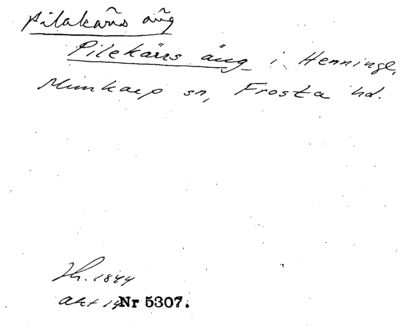 Pilakärrs äng
Pilekärrs äng i Henninge,
Munkarp sn, Frosta hd.
Sk. 1844
akt 19 Nr 5307.